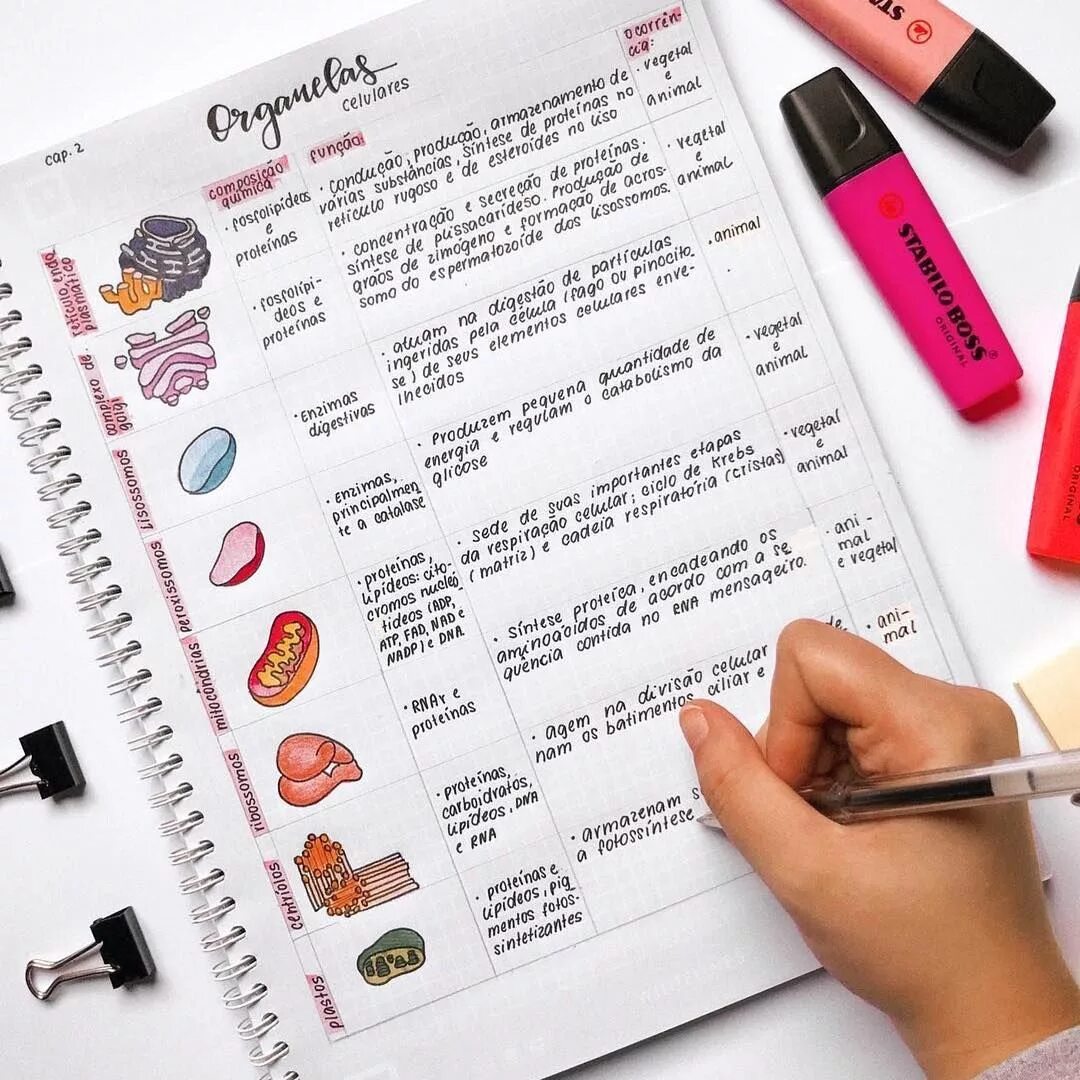 cap. 2
Organelas
celulares
composição
química
função
ocorrên-
cia:
retículo endo
plasmático
· fosfolipídeos
e
proteínas
· condução, produção, armazenamento de
várias substâncias, síntese de proteínas no
retículo rugoso e de esteróides no liso
· vegetal
e
animal
complexo de
golgi
· fosfolipí-
deos e
proteínas
· concentração e secreção de proteínas.
síntese de plissacarídeso. Produção de
grãos de zimógeno e formação de acros-
somo do espermatozoide dos lisossomos.
· vegetal
e
animal
Lisossomos
· Enzimas
digestivas
· atuam na digestão de partículas
ingeridas pela célula (fago ou pinocito
se) de seus elementos celulares enve-
lhecidos
· animal
peroxissomos
· Enzimas,
principalmen
te a catalase
· Produzem pequena quantidade de
energia e regulam o catabolismo da
glicose
· vegetal
e
animal
mitocôndrias
· proteínas,
lipídeos: cito-
cromos nucleo
tideos (ADP,
ATP, FAD, NAD e
NADP) e DNA
· sede de suas importantes etapas
da respiração celular; ciclo de Krebs
(matriz) e cadeia respiratória (cristas)
· vegetal
e
animal
ribossomos
· RNAr e
proteínas
· síntese proteica, encadeando os
aminoácidos de acordo com a se
quência contida no RNA mensageiro.
· ani-
mal
e vegetal
centríolos
· proteínas,
carboidratos,
lipídeos, DNA
e RNA
· agem na divisão celular
nam os batimentos ciliar e
· ani-
mal
plastos
· proteínas e
lipídeos, pig
mentos fotos-
sintetizantes
· armazenam s
a fotossíntese
STABILO BOSS®
ORIGINAL
STA
ORIGINAL